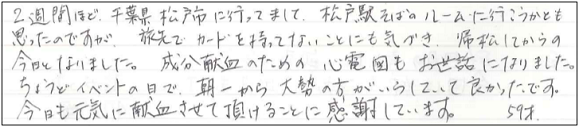 2週間ほど、千葉県松戸市に行ってまして、松戸駅そばのルームに行こうかとも
思ったのですが、旅先でカードを持ってないことにも気づき、帰松してからの
今日となりました。成分献血のための心電図もお世話になりました。
ちょうどイベントの日で、朝一から大勢の方がいらしていて良かったです。
今日も元気に献血させて頂けることに感謝しています。 59才.